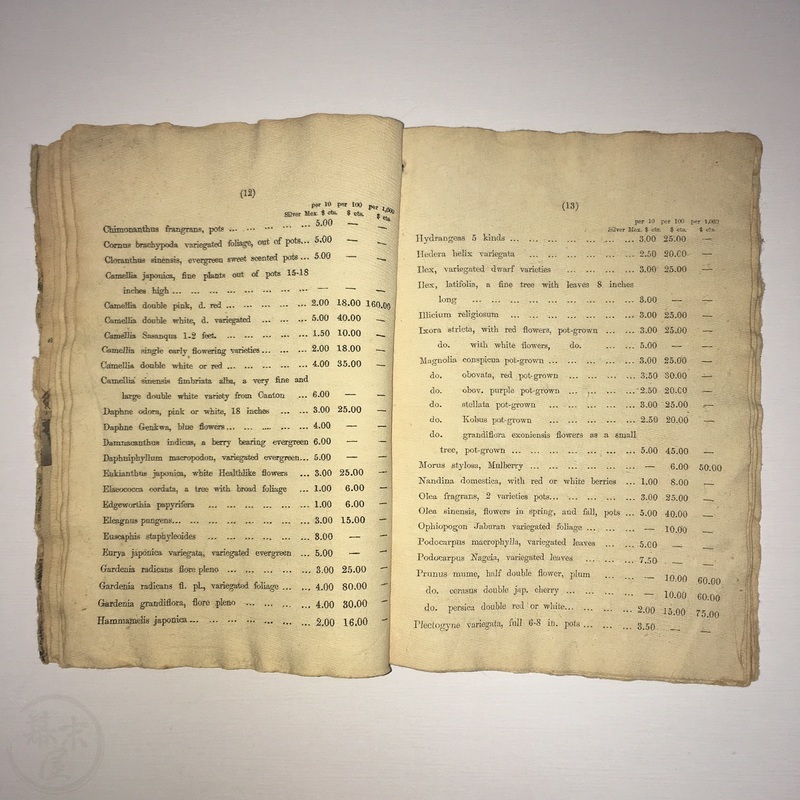 (12)
per 10 per 100 per 1,000
Silver Mex. $ cts. $ cts. $ cts.
Chimonanthus frangrans, pots ... ... ... ... ... 5.00 — —
Cornus brachypoda variegated foliage, out of pots... 5.00 — —
Cloranthus sinensis, evergreen sweet scented pots ... 5.00 — —
Camellia japonica, fine plants out of pots 15-18
inches high ... ... ... ... ... ... ... — — —
Camellia double pink, d. red ... ... ... ... ... 2.00 18.00 160.00
Camellia double white, d. variegated ... ... ... 5.00 40.00 —
Camellia Susanqua 1-2 feet. ... ... ... ... ... 1.50 10.00 —
Camellia single early flowering varieties... ... ... 2.00 18.00 —
Camellia double white or red ... ... ... ... ... 4.00 35.00 —
Camellia sinensis fimbriata alba, a very fine and
large double white variety from Canton ... 6.00 — —
Daphne odora, pink or white, 18 inches ... ... 3.00 25.00 —
Daphne Genkwa, blue flowers... ... ... ... ... 4.00 — —
Damnacanthus indicus, a berry bearing evergreen 6.00 — —
Daphniphyllum macropodon, variegated evergreen... 5.00 — —
Enkianthus japonica, white Healthlike flowers ... 3.00 25.00 —
Elaeococca cordata, a tree with broad foliage ... 1.00 6.00 —
Edgeworthia papyrifera ... ... ... ... ... 1.00 6.00 —
Eleagnus pungens... ... ... ... ... ... ... 3.00 15.00 —
Euscaphis staphyleoides ... ... ... ... ... 8.00 — —
Eurya japonica variegata, variegated evergreen ... 5.00 — —
Gardenia radicans flore pleno ... ... ... ... 3.00 25.00 —
Gardenia radicans fl. pl., variegated foliage ... ... 4.00 80.00 —
Gardenia grandiflora, flore pleno ... ... ... ... 4.00 30.00 —
Hammamelis japonica ... ... ... ... ... ... 2.00 16.00 —
(13)
per 10 per 100 per 1,000
Silver Mex. $ cts. $ cts. $ cts.
Hydrangeas 5 kinds ... ... ... ... ... ... ... 3.00 25.00 —
Hedera helix variegata ... ... ... ... ... ... 2.50 20.00 —
Ilex, variegated dwarf varieties ... ... ... ... 3.00 25.00 —
Ilex, latifolia, a fine tree with leaves 8 inches
long ... ... ... ... ... ... ... ... 3.00 — —
Illicium religiosum ... ... ... ... ... ... 3.00 25.00 —
Ixora stricta, with red flowers, pot-grown ... ... 3.00 25.00 —
do. with white flowers, do. ... ... 5.00 — —
Magnolia conspicua pot-grown ... ... ... ... ... 3.00 25.00 —
do. obovata, red pot-grown ... ... ... ... 3.50 30.00 —
do. obov. purple pot-grown ... ... ... ... 2.50 20.00 —
do. stellata pot-grown ... ... ... ... ... 3.00 25.00 —
do. Kobus pot-grown ... ... ... ... ... 2.50 20.00 —
do. grandiflora exoniensis flowers as a small
tree, pot-grown ... ... ... ... ... ... 5.00 45.00 —
Morus stylosa, Mulberry ... ... ... ... ... ... — 6.00 50.00
Nandina domestica, with red or white berries ... 1.00 8.00 —
Olea fragrans, 2 varieties pots... ... ... ... ... 3.00 25.00 —
Olea sinensis, flowers in spring, and fall, pots ... 5.00 40.00 —
Ophiopogon Jaburan variegated foliage ... ... ... — 10.00 —
Podocarpus macrophylla, variegated leaves ... ... 5.00 — —
Podocarpus Nageia, variegated leaves ... ... ... 7.50 — —
Prunus mume, half double flower, plum ... ... — 10.00 60.00
do. cerasus double jap. cherry ... ... ... ... — 10.00 60.00
do. persica double red or white... ... ... ... 2.00 15.00 75.00
Plectogyne variegata, full 6-8 in. pots ... ... ... 3.50 — —
幕末屋